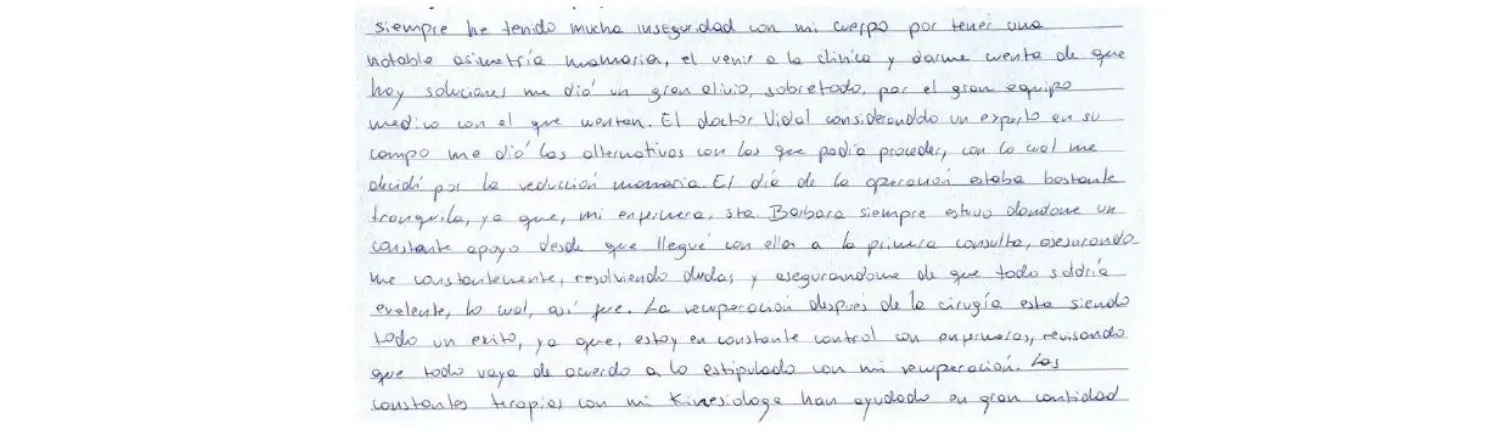 siempre he tenido mucha inseguridad con mi cuerpo por tener una
notable asimetría mamaria, el venir a la clinica y darme cuenta de que
hay soluciones me dió un gran alivio, sobretodo, por el gran equipo
medico con el que cuentan. El doctor Vidal considerando un experto en su
campo me dió las alternativas con las que podía proceder, con lo cual me
decidí por la reducción mamaria. El día de la operación estaba bastante
tranquila, ya que, mi enfermera, sta. Barbara siempre estuvo dandome un
constante apoyo desde que llegué con ellos a la primera consulta, asesorando
me constantemente, resolviendo dudas y asegurandome de que todo saldría
exelente, lo cual, así fue. La recuperación después de la cirugía esta siendo
todo un exito, ya que, estoy en constante control con enfermeras, revisando
que todo vaya de acuerdo a lo estipulado con mi recuperación. Las
constantes terapias con mi Kinesiologa han ayudado en gran cantidad